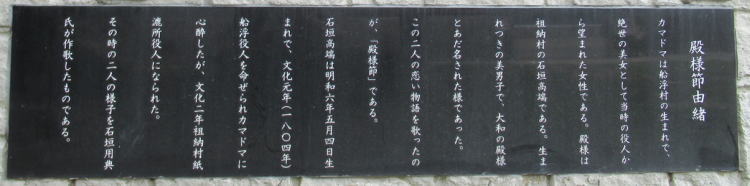 殿様節由緒
カマドマは船浮村の生まれで、
絶世の美女として当時の役人か
ら望まれた女性である。殿様は
祖納村の石垣高端である。生ま
れつきの美男子で、大和の殿様
とあだ名された様であった。
この二人の恋い物語を歌ったの
が、「殿様節」である。
石垣高端は明和六年五月四日生
まれで、文化元年(一八〇四年)
船浮役人を命ぜられカマドマに
心酔したが、文化二年祖納村紙
漉所役人になられた。
その時の二人の様子を石垣用典
氏が作歌したものである。